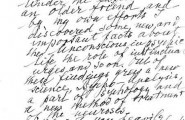 under an
older friend and
by my own efforts I
discovered some new and
important facts about
the unconscious in psychic
life the role of instinctual
urges and so on. Out of
these findings grew a new
science, Psychoanalysis,
a part of psychology and
a new method of treatment
of the neuroses.